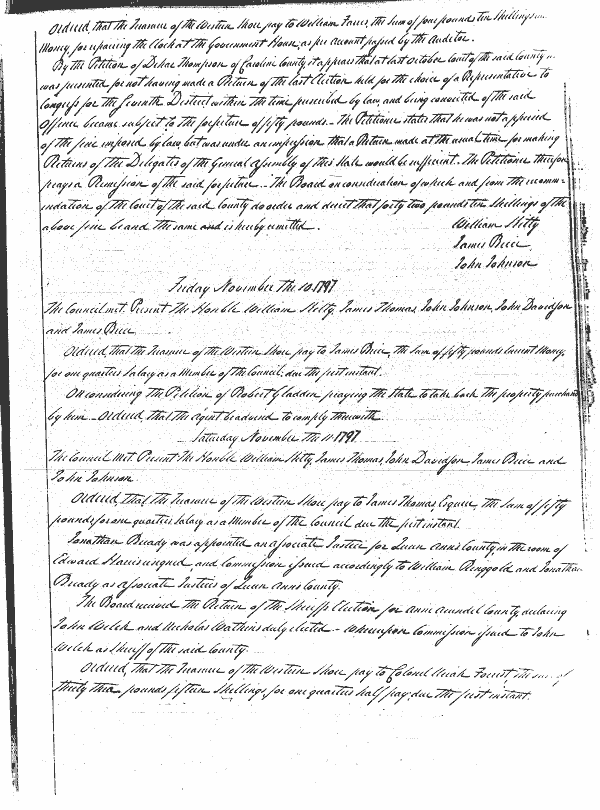 Ordered, that the Treasurer of the Western Shore pay to William Faris, the Sum of four pounds ten Shillings
Money, for repairing the Clock at the Government House, as per account passed by the Auditor.
By the Petition of Thompson of Caroline County it appears that at last October Court of the said County
was presented for not having made a Return of the last Election held for the choice of a Representative to
Congress for the Seventh District within the time prescribed by law and being convicted of the said
Offence became subject to the forfeiture of fifty pounds - the Petitioner states that he was not apprised
of the fine imposed by law, but was under an impression that a Return made at the usual time for making
Returns of the Delegates of the General Assembly of this State would be sufficient - the Petitioner therefore
prays a Remission of the said forfeiture - The Board on consideration of which and from the recomm-
endation of the Court of the said County do order and direct that forty two pounds ten Shillings of the
above fine be and the same and is hereby remitted.
William Hilty
James Brice
John Johnson
Friday November the 10. 1797
The Council met. Present The Honble William Hilty, James Thomas, John Johnson, John Davidson
and James Brice
Ordered, that the Treasurer of the Western Shore pay to James Brice, the Sum of fifty pounds Current Money,
for one quarters Salary as a Member of the Council, due the first instant.
On considering the Petition of Robert Gladden praying the State to take back the property purchased
by him - Ordered, that the agent be advised to comply therewith
Saturday November the 11. 1797
The Council Met. Present The Honble William Hilty, James Thomas, John Davidson James Brice and
John Johnson.
Ordered, that the Treasurer of the Western Shore pay to James Thomas Esquire, the Sum of fifty
pounds, for one quarters Salary as a Member of the Council due the first instant.
Jonathan Brady was appointed an associate Justice for Queen Anns County in the room of
Edward Harris resigned, and Commission issued accordingly to William Ringgold and Jonathan
Brady as associate Justices of Queen Anns County.
The Board received the Return of the Sheriffs Election for Anne Arundel County, declaring
John Welch and Nicholas Watkins duly elected - whereupon Commission issued to John
Welch as Sheriff of the said County
Ordered, that the Treasurer of the Western Shore pay to Colonel Uriah Forrest, the sum of
thirty three pounds fifteen Shillings, for one quarters half pay due the first instant.